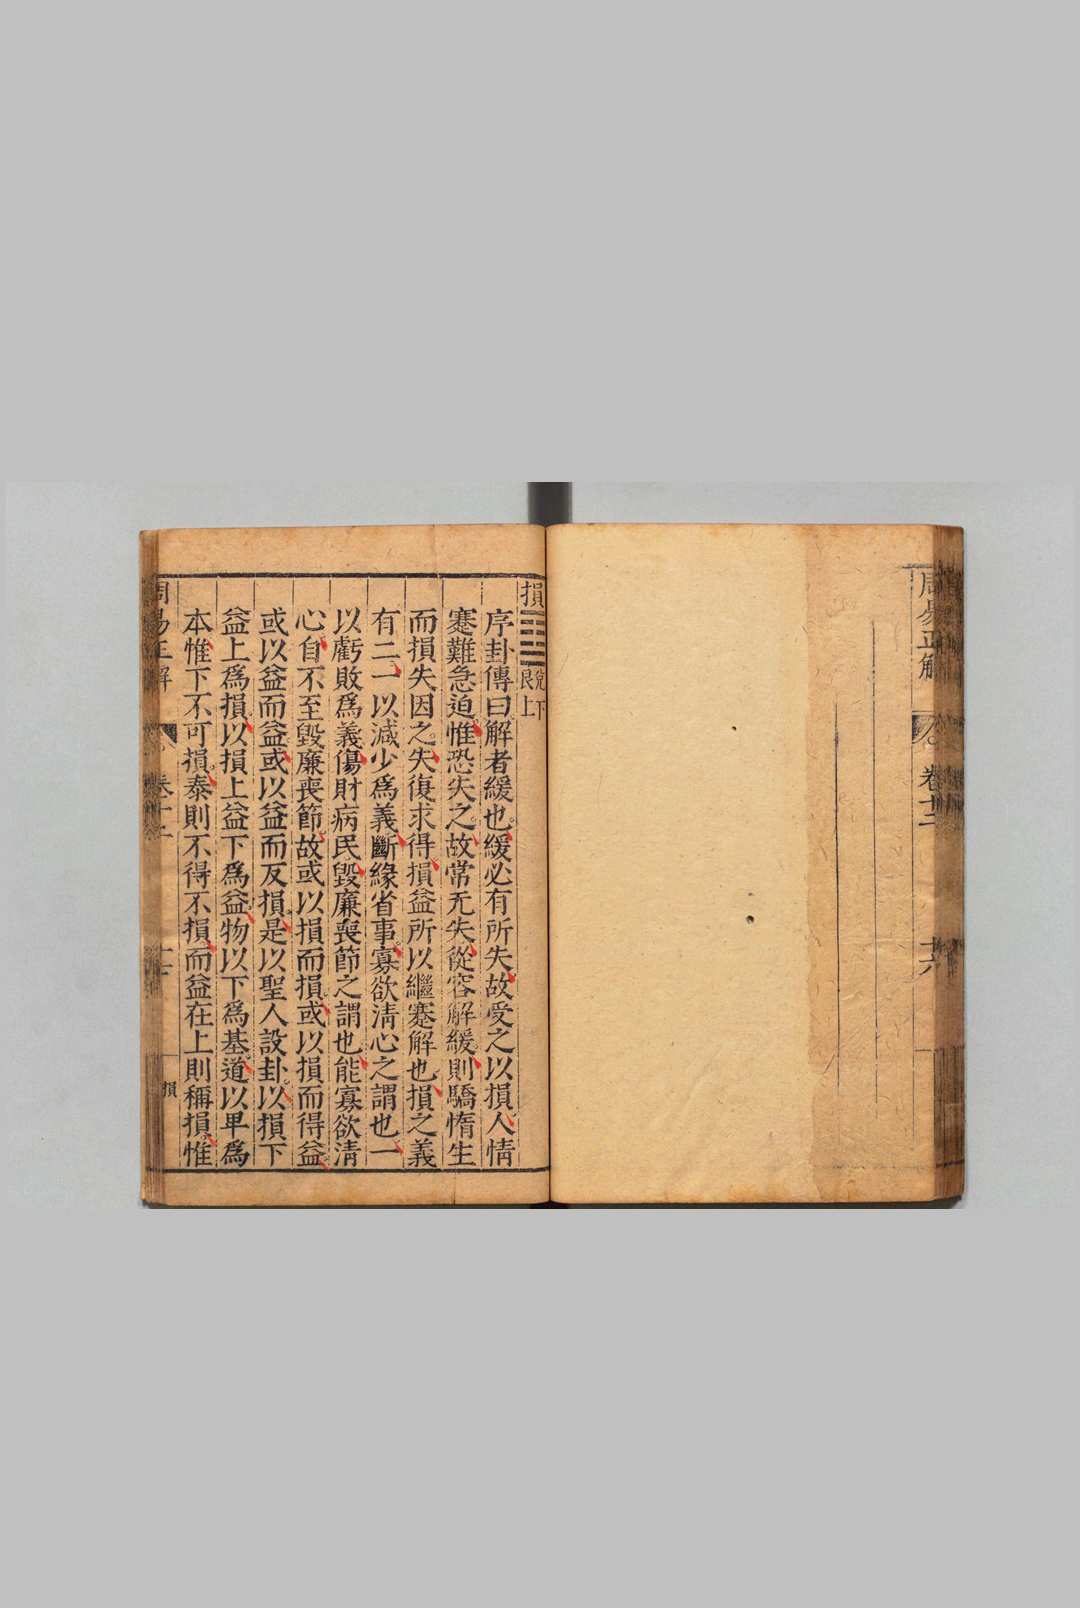 周易正解
卷十二
十六
損䷨兌下
艮上
序卦傳曰解者緩也緩必有所失故受之以損人情
蹇難急迫惟恐失之故常无失從容解緩則驕惰生
而損失因之失復求得損益所以繼蹇解也損之義
有二一以減少爲義斷緣省事寡欲清心之謂也一
以虧敗爲義傷財病民毀廉喪節之謂也能寡欲清
心自不至毀廉喪節故或以損而損或以損而得益
或以益而益或以益而反損是以聖人設卦以損下
益上爲損以損上益下爲益物以下爲基道以卑爲
本惟下不可損泰則不得不損而益在上則稱損惟
周易正解
卷十二
損